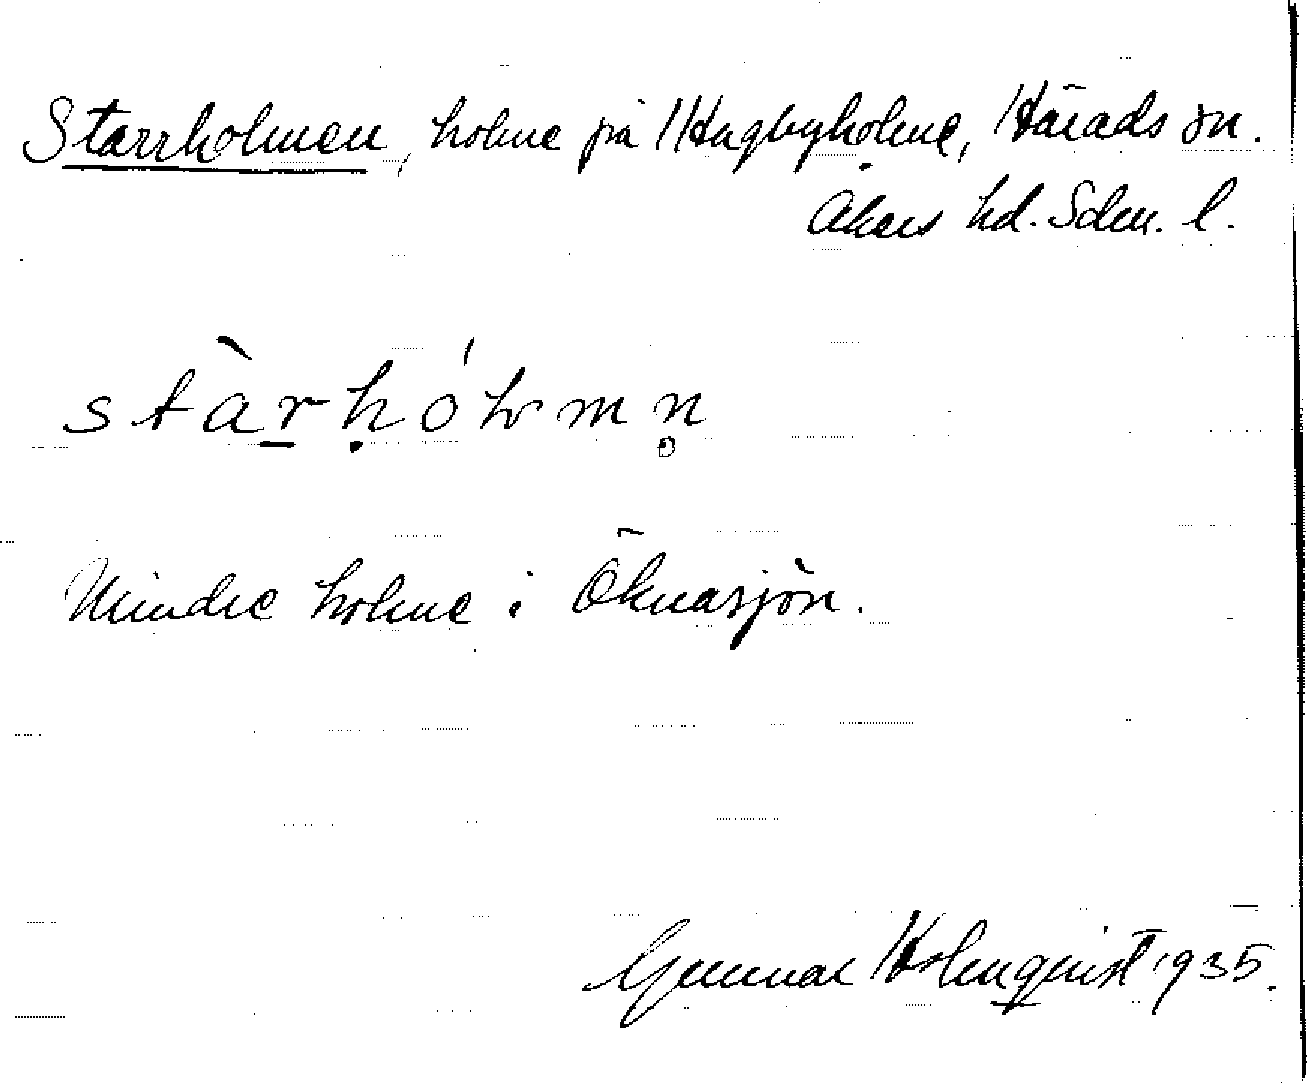 Starrholmen, holme på Hugbyholme, Härads sn.
Åkers hd. Sdm. l.
stàrhólmn̥
Mindre holme i Öknasjön.
Gunnar Holmquist 1935.